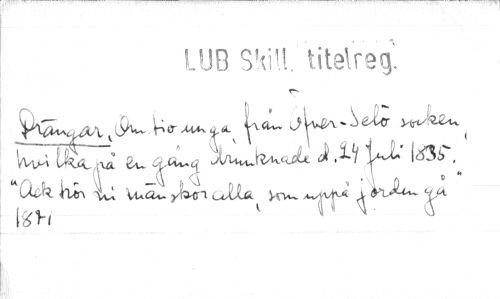 LUB Skill. titelreg.
Drängar, Om tio unga, från Öfver-Selö socken,
hvilka på en gång drunknade d. 24 Juli 1835.
"Ack hör ni mänskor alla, som uppå jorden gå"
1871